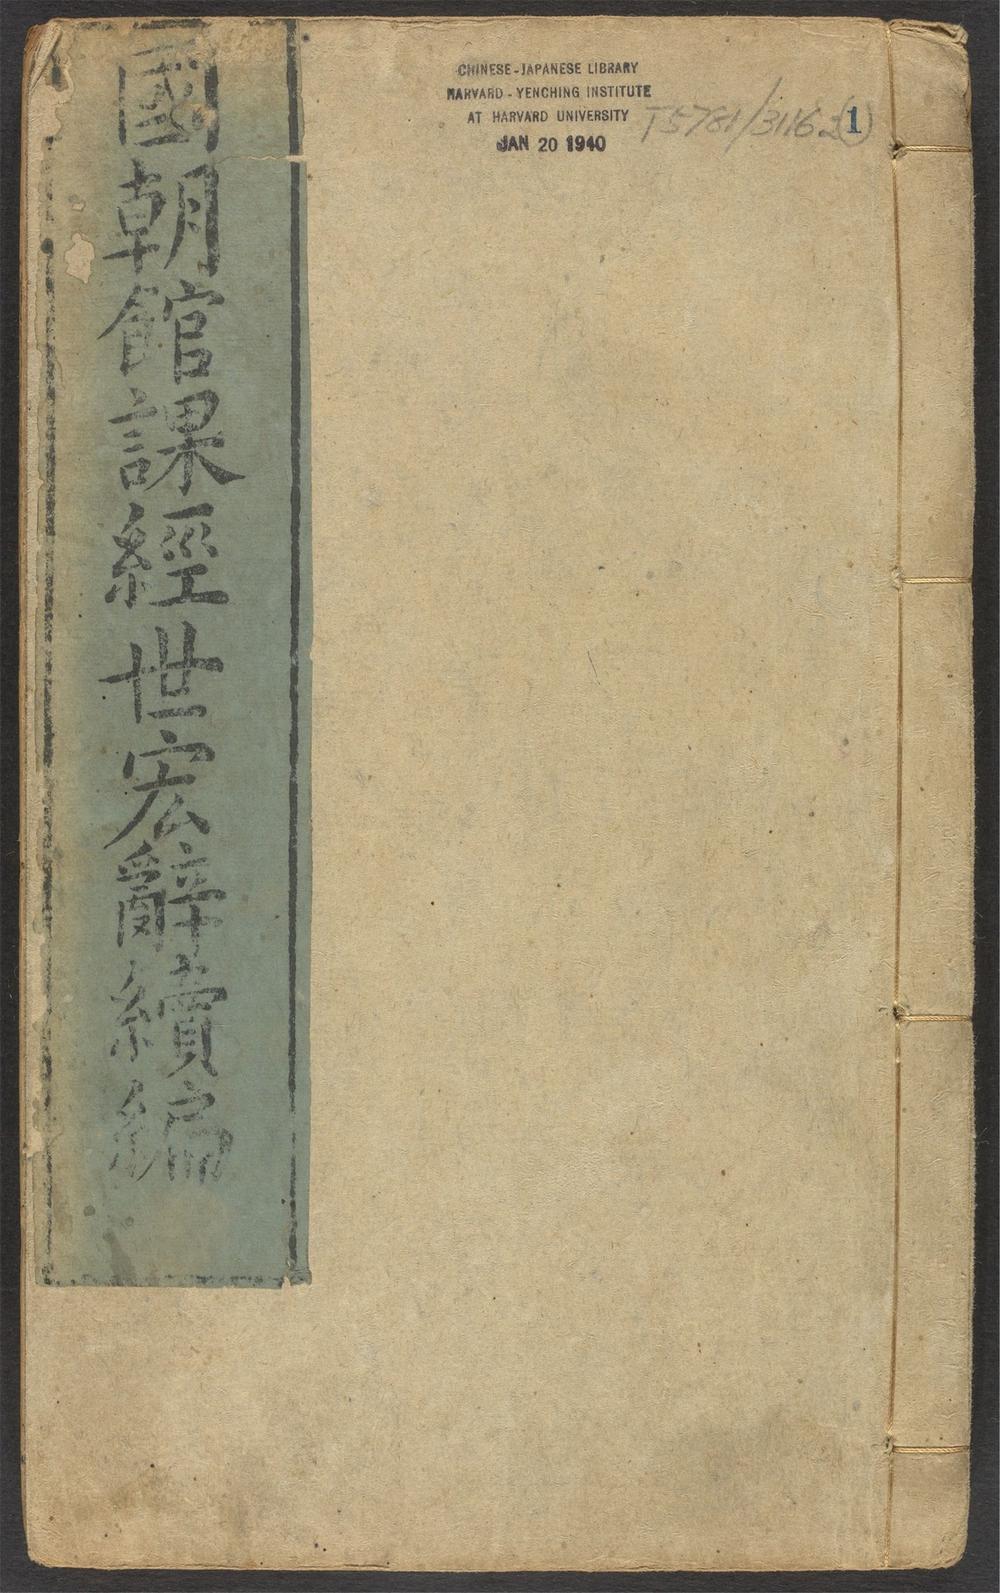 國朝館課經世宏辭續編
CHINESE-JAPANESE LIBRARY
HARVARD-YENCHING INSTITUTE
AT HARVARD UNIVERSITY
JAN 20 1940
T5781/3116.2(1)